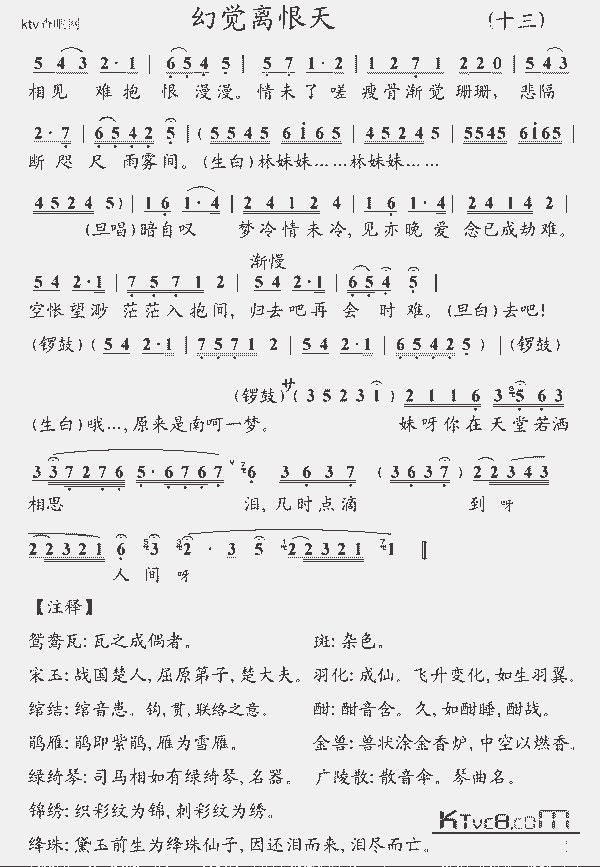 ktv查吧网 幻觉离恨天 (十三)
5 4 3 2·1 | 6 5 4 5 | 5 7 1·2 | 1 2 7 1 2 2 0 | 5 4 3
相见 难抱 恨 漫漫。情未了嗟 瘦骨渐觉 珊珊, 悲隔
2·7 | 6 5 4 2 5 | (5 5 4 5 6 i 6 5 | 4 5 2 4 5 | 5545 6i65 |
断 咫 尺 雨雾间。(生白)林妹妹……林妹妹……
4 5 2 4 5) | 1 6 1·4 | 2 4 1 2 4 | 1 6 1·4 | 2 4 1 4 2 |
(旦唱)暗自叹 梦冷情未冷,见亦晚 爱 念已成劫难。
渐慢
5 4 2·1 | 7 5 7 1 2 | 5 4 2·1 | 6 5 4 5 |
空怅望渺 茫茫入抱间, 归去吧再 会 时 难。(旦白)去吧!
(锣鼓) (5 4 2·1 | 7 5 7 1 2 | 5 4 2·1 | 6 5 4 2 5) | (锣鼓)
(锣鼓) 廾 (3 5 2 3 1) 2 1 1 6 3 5 6 3
(生白)哦…,原来是南呵一梦。 妹呀你在天堂若洒
3 3 7 2 7 6 5·6 7 6 7 6 3 6 3 7 (3 6 3 7) 2 2 3 4 3
相思 泪,几时点滴 到 呀
2 2 3 2 1 6 3 2·3 5 2 2 3 2 1 1
人 间 呀
【注释】
鸳鸯瓦:瓦之成偶者。 斑:杂色。
宋玉:战国楚人,屈原第子,楚大夫。 羽化:成仙。飞升变化,如生羽翼。
绾结:绾音患。钩,贯,联络之意。 酣:酣音含。久,如酣睡,酣战。
鹃雁:鹃即紫鹃,雁为雪雁。 金兽:兽状涂金香炉,中空以燃香。
绿绮琴:司马相如有绿绮琴,名器。 广陵散:散音伞。琴曲名。
锦绣:织彩纹为锦,刺彩纹为绣。
绛珠:黛玉前生为绛珠仙子,因还泪而来,泪尽而亡。
KTvc8.com